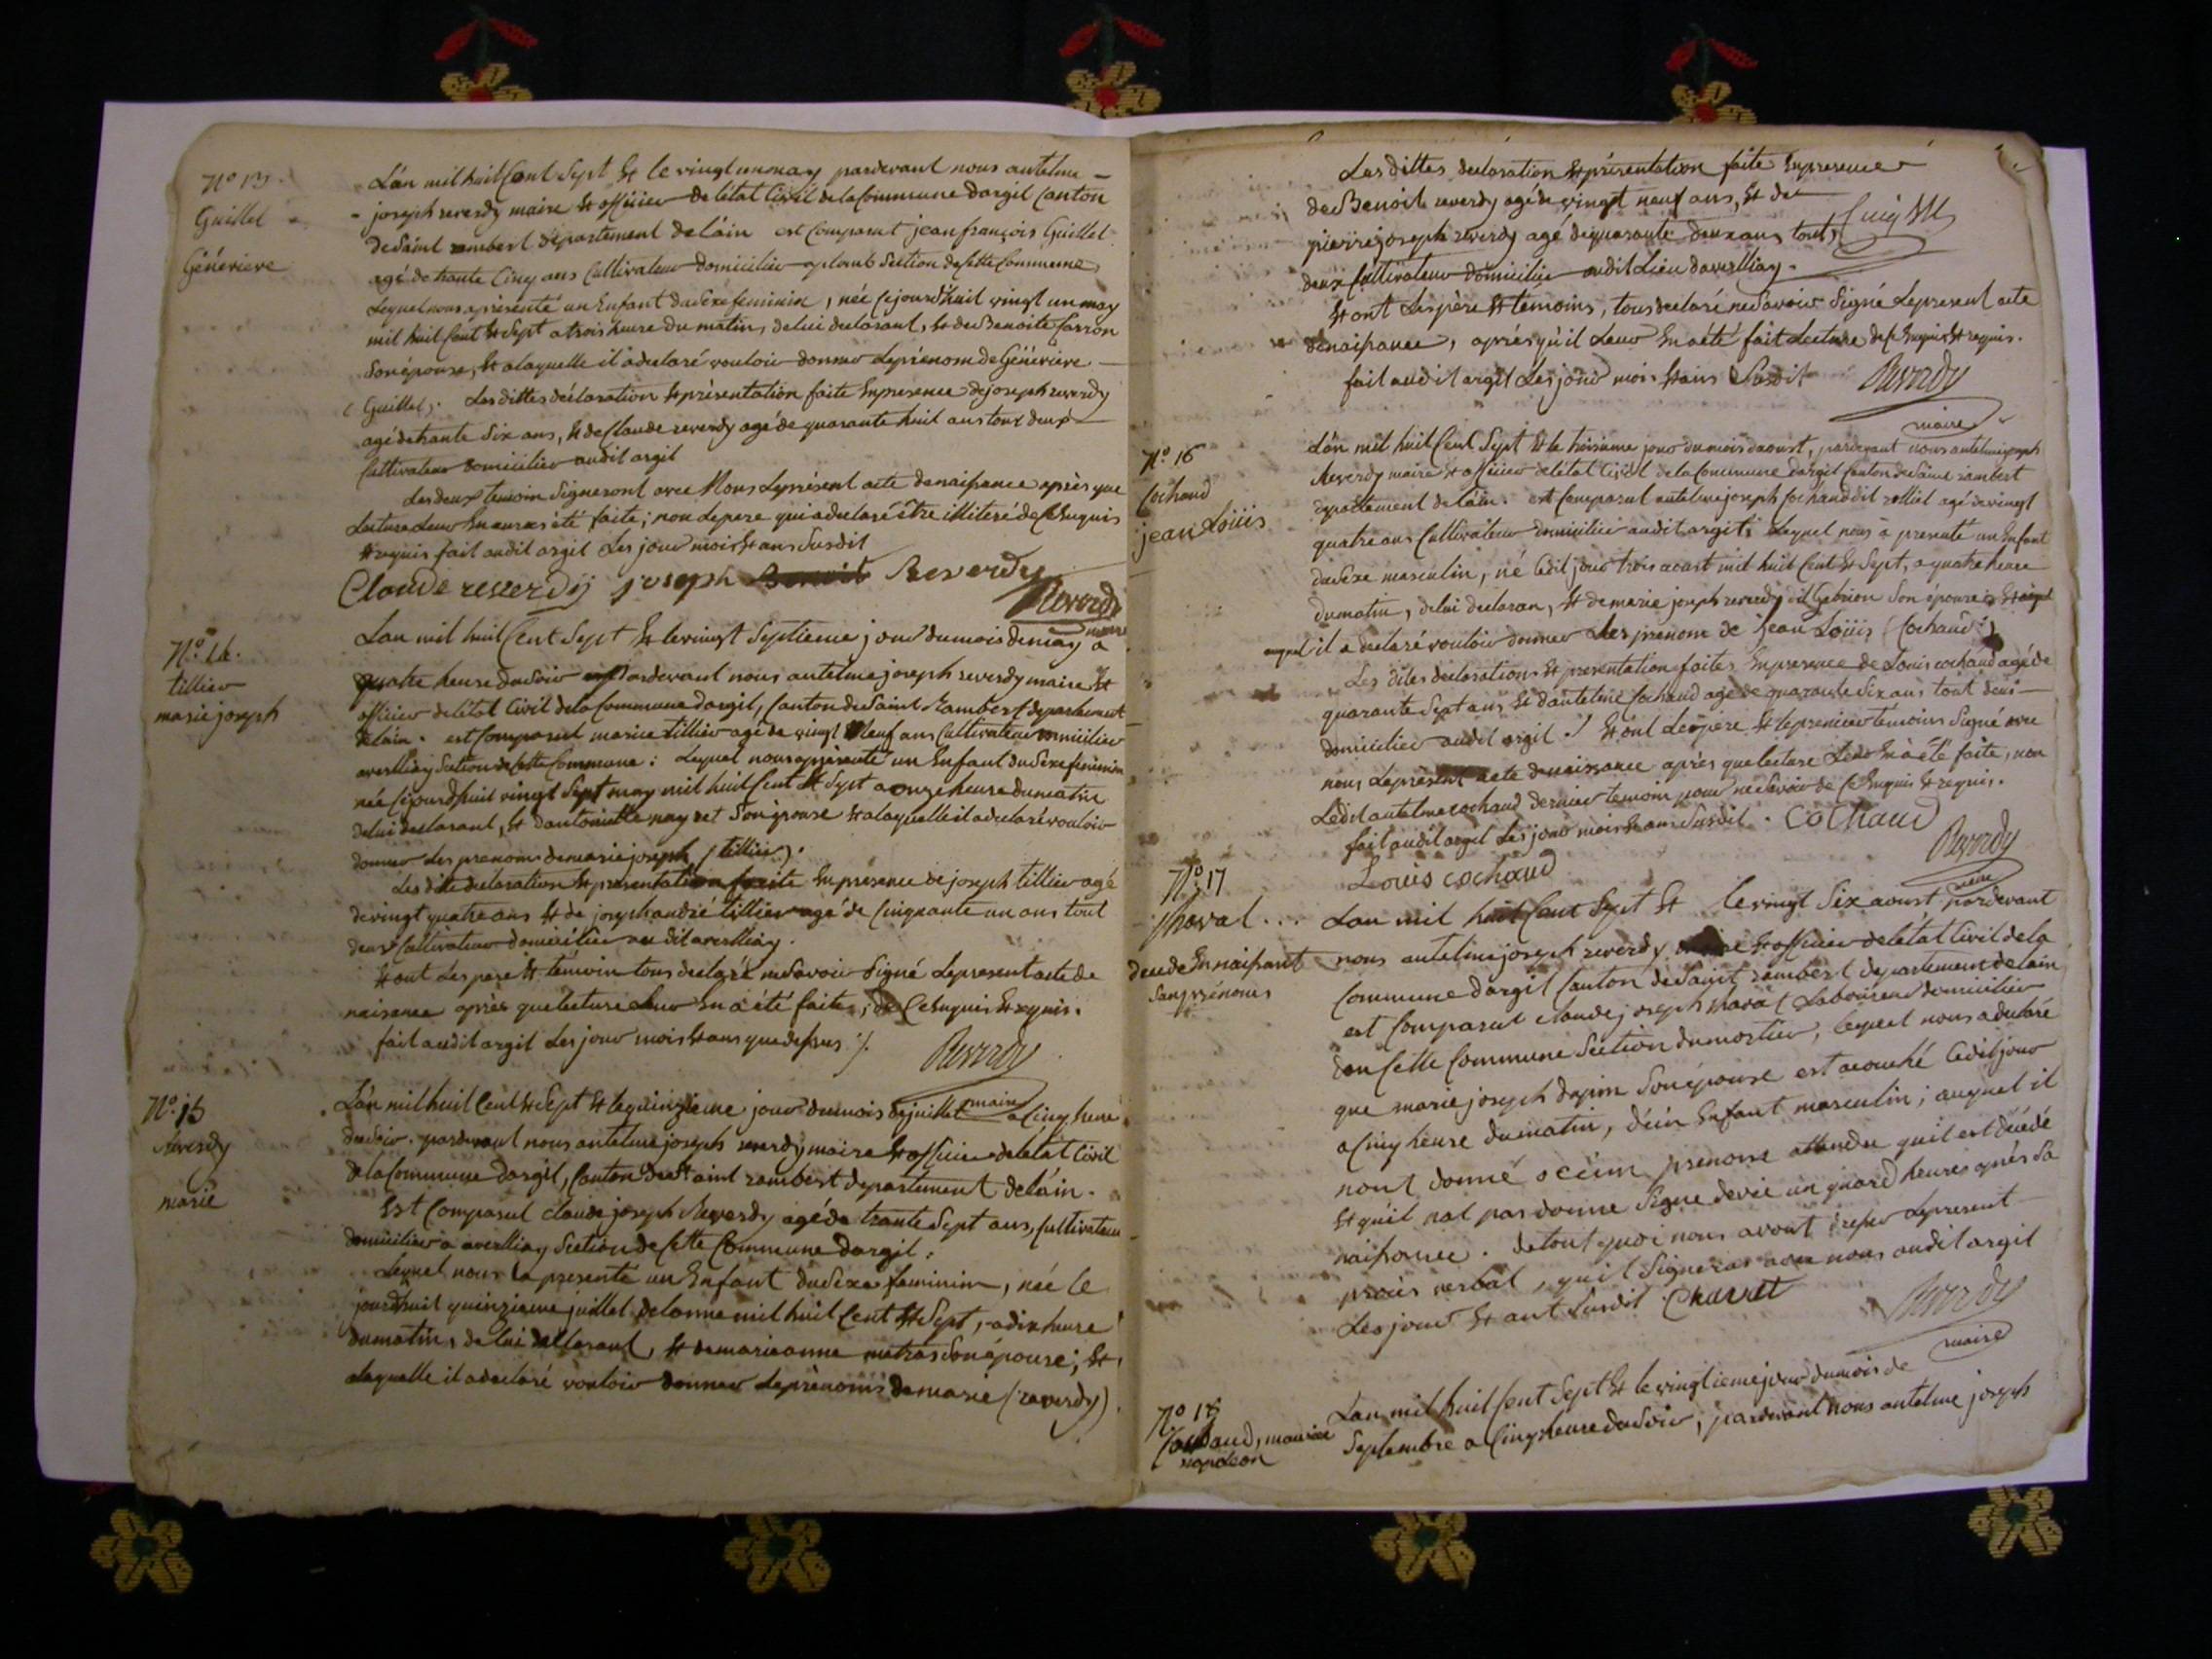 N° 13.
Guillet
Géneviève
L'an mil huit Cent Sept Et le vingt un may pardevant nous antelme
joseph reverdy maire Et officier de létat Civil de la Commune dargil Canton
de Saint rambert département de láin est Comparut jean françois Guillet
agé de trante Cinq ans Cultivateur domicilier aplomb Section de cette Commune
Lequel nous a présenté un Enfant du Sexe feminin, née cejourd'huit vingt un may
mil huit Cent Et Sept a trois heure du matin, de lui declarant, Et de Benoite Carron
Son épouse, Et a laquelle il a declaré vouloir donner Leprénom de Génevieve
(Guillet). Les dittes déclaration Et présentation faite En presence de joseph reverdy
agé de trante Six ans, Et de Claude reverdy agé de quarante huit ans tout deux
Cultivateur domicilier audit argil
Les deux temoin Signeront avec Nous Leprésent acte de naissance après que
Lecture Leur En auras été faite; non Le pere qui a declaré être illiteré de Ce Enquis
Et requis fait audit argil Les jour mois Et ans Susdit
Claude reverdy joseph Reverdy
Reverdy
maire
N° 14.
tillier
marie joseph
L'an mil huit Cent Sept Et le vingt Septieme jour du mois de may a
quatre heure du Soir Pardevant nous antelme joseph reverdy maire Et
officier de létat Civil de la Commune dargil, Canton de Saint Rambert département
de láin. est Comparut marin tillier agé de vingt Neuf ans Cultivateur domicilier
averlliay Section de Cette Commune: Lequel nous a présenté un Enfant du Sexe feminin
née Cejourdhuit vingt Sept may mil huit Cent Et Sept a onze heure du matin
de lui declarant, Et dantoinette Son épouse Et a laquelle il a declaré vouloir
donner Les prenoms de marie joseph (tillier).
Les dite declaration Et présentation faite En présence de joseph tillier agé
de vingt quatre ans Et de joseph andré tillier agé de Cinquante un ans tout
deux Cultivateur domicilier au dit averlliay.
Et ont Les pere Et témoin tous declaré ne Savoir Signé Le present acte de
naisance après que lecture Leur En a été faite; de Ce Enquis Et requis.
fait audit argil Les jour mois Et ans que dessus ./.
Reverdy
maire
N° 15
Reverdy
marie
L'án mil huit Cent Et Sept Et le quinzieme jour du mois de juillet a Cinq heure
du Soir. pardevant nous antelme joseph reverdy maire Et officier de létat Civil
de la Commune dargil, Canton de St aint rambert departement de láin.
Est Comparut claude joseph Reverdy agé de trante Sept ans, Cultivateur
domicilier a averlliay Section de Cette Commune dargil:
Lequel nous a presenté un Enfant du Sexe feminim, née le
jourdhuit quinzieme juillet de lanne mil huit Cent Et Sept, a dix heure
du matin, de lui declarant, Et de marie anne metras Son épouse; Et
alaquelle il a declaré vouloir donner Leprénoms de marie (reverdy)
Les dittes declaration Et présentation faite En presence
de Benoit reverdy agé de vingt neuf ans, Et de
pierre joseph reverdy agé de quarante deux ans tout
deux Cultivateur domicilier audit Lieu daverlliay.
Et ont Les père Et temoins, tous declaré ne Savoir Signé Le present acte
de naissance, après qu'il Leur En a été fait Lecture de Ce Enquis Et requis.
fait audit argil Les jour mois Et ans Susdit
Reverdy
maire
N° 16
Cochand
jean Loüis
L'án mil huit Cent Sept Et le troisieme jour du mois daoust, pardevant nous antelme joseph
Reverdy maire Et officier de létat Civil de la Commune dargil Canton de Saint rambert
departement de láin. est Comparut antelme joseph Cochand dit agé de vingt
quatre ans Cultivateur domicilier audit argil; Lequel nous a presenté un Enfant
du Sexe masculin, né Ledit jour trois aoust mil huit Cent Et Sept, a quatre heure
du matin, de lui declaran, Et de marie joseph reverdy dit Son épouse
auquel il a declaré vouloir donner Les prenom de jean Loüis (Cochand)
Les dites declarations Et presentation faites En presence de Louis cochand agé de
quarante Sept ans Et dantelme Cochand agé de quarante Six ans tout deux
domicilier audit argil ./ Et ont Le pere Et le premier témoins Signé avec
nous Leprésent acte de naissance après que lecture Leur En a été faite, non
Ledit antelme cochand dernier temoin pour ne Savoir de Ce Enquis Et requis.
fait audit argil Les jour mois Et ans Susdit. Cochaud
Louis cochaud
Reverdy
maire
N° 17
Charvat...
decede En naissant
Sans prénoms
L'an mil huit Cent Sept Et le vingt Six aoust pardevant
nous antelme joseph reverdy maire Et officier de létat Civil de la
Commune dargil Canton de Saint rambert departement de lain
est Comparut claude joseph Laboureur domicilier
dan Cette Commune Section du mortier, lequel nous a declaré
que marie joseph dapin Son épouse est acouché Ledit jour
a Cinq heure du matin, d'ùn Enfant masculin; auquel il
nont donné ocüun prenom attendu quil est décédé
Et quil nat pas donné Signe de vie un quard heures après Sa
naissance. de tout quoi nous avont dresser Lepresent
procès verbal, qu'il Signeras avec nous audit argil
Les jour Et ant Susdit Charvet
Reverdy
maire
N° 18
Cochaud, maurice
napoleon
L'an mil huit Cent Sept Et le vingtieme jour du mois de
Septembre a Cinq heure du Soir, pardevant nous antelme joseph